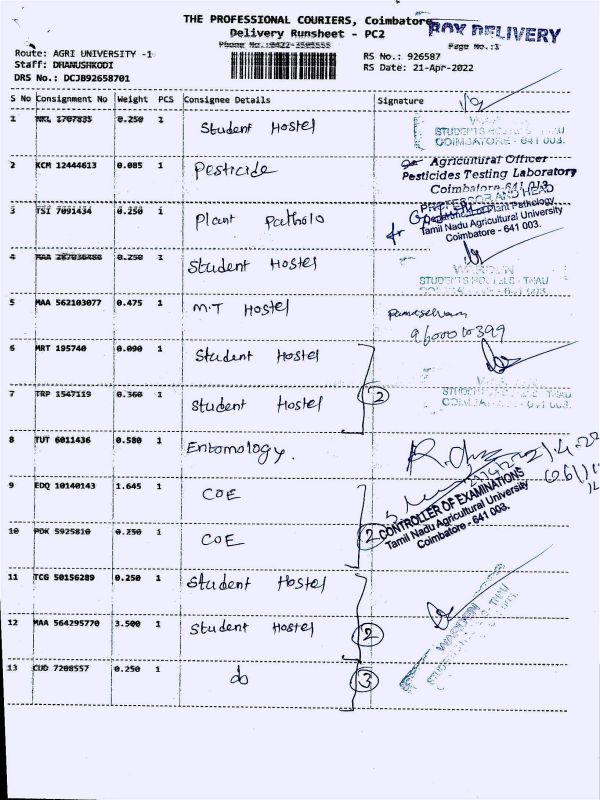 THE PROFESSIONAL COURIERS, Coimbatore
BOX DELIVERY
Delivery Runsheet - PC2
Phone No.:0422-3505555
Page No.:1
Route: AGRI UNIVERSITY -1
Staff: DHANUSHKODI
DRS No.: DCJB92658701
RS No.: 926587
RS Date: 21-Apr-2022
S No Consignment No Weight PCS Consignee Details Signature
1 NKL 1707835 0.250 1 Student Hostel
STUDENTS HOSTELS TNAU
COIMBATORE - 641 003.
2 KCM 12444613 0.085 1 Pesticide
Agricultural Officer
Pesticides Testing Laboratory
Coimbatore-641 013
3 TSI 7091434 0.250 1 Plant Patholo
PROFESSOR AND HEAD
Department of Plant Pathology
Tamil Nadu Agricultural University
Coimbatore - 641 003.
4 MAA 0.250 1 Student Hostel
WARDEN
STUDENTS HOSTELS - TNAU
5 MAA 562103077 0.475 1 M.T Hostel
6 MRT 195740 0.090 1 Student Hostel
7 TRP 1547119 0.360 1 Student Hostel
2
8 TUT 6011436 0.580 1 Entomology.
9 EDQ 10140143 1.645 1 COE
CONTROLLER OF EXAMINATIONS
Tamil Nadu Agricultural University
Coimbatore - 641 003.
10 PDK 5925810 0.250 1 COE
2
11 TCG 50156289 0.250 1 Student Hostel
12 MAA 564295770 3.500 1 Student Hostel
2
WARDEN
13 CUD 7208557 0.250 1 do
3